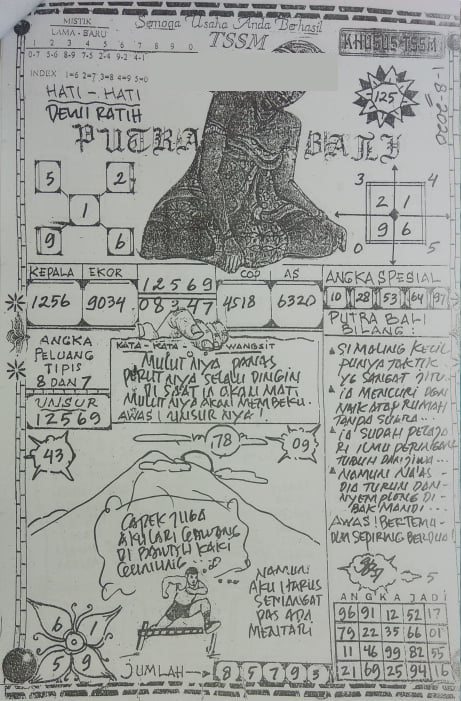 MISTIK
LAMA - BARU
1 2 3 4 5 6 7 8 9 0
0-7 5-6 8-9 7-5 2-4 9-2 4-1
INDEX 1=6 2=7 3=8 4=9 5=0
Semoga Usaha Anda Berhasil
TSSM
KHUSUS TSSM
1-8-2020
125
HATI - HATI
DEWI RATIH
PUTRA BALI
5 2
1
9 6
3 4
2 1
9 6
0 5
KEPALA EKOR
1256 9034
12569
08347
COP AS
4518 6320
ANGKA SPESIAL
10 28 53 64 97
ANGKA
PELUANG
TIPIS
8 DAN 7
UNSUR
12569
KATA - KATA - WANGSIT
MULUTNYA PANAS
PERUTNYA SELALU DINGIN
DI SAAT IA AKAN MATI
MULUTNYA AKAN MEMBEKU.
AWAS! UNSURNYA!
PUTRA BALI
BILANG:
SI MALING KECIL
PUNYA TAKTIK
YG SANGAT JITU
IA MENCURI DARI
NAIK ATAP RUMAH
TANPA SUARA...
IA SUDAH
RI ILMU
TUBUH DAN JIWA...
NAMUN NAAS
DIA TURUN DAN
NYEMPLONG DI
BAK MANDI...
AWAS! BERTEMU
DLM SEPIRING BERDUA!
43
78
09
CAPEK JUGA
AKU LARI
DI BAWAH KAKI
GUNUNG...
NAMUN
AKU HARUS
SEMANGAT
6 1
5 9
JUMLAH → 8 5 7 9 3
5
ANGKA JADI
96 91 12 52 17
79 22 35 66 01
11 46 99 82 55
21 69 25 94 16